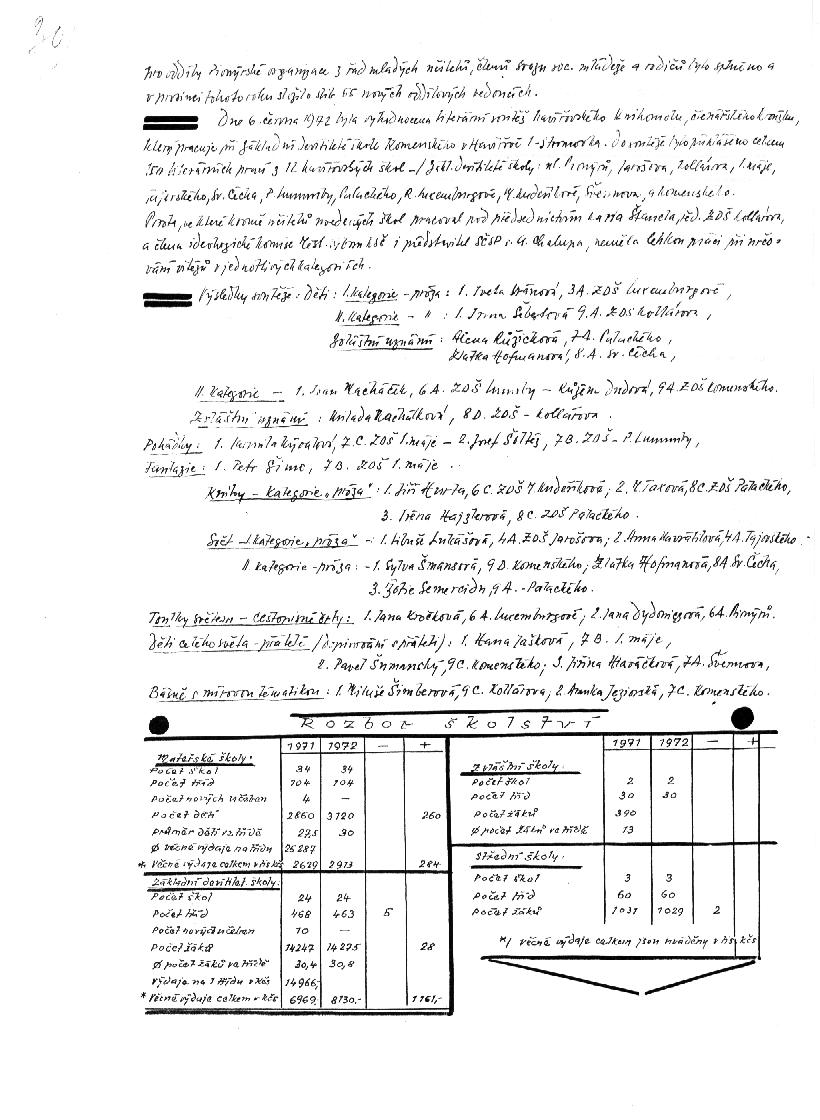 20
pro oddíly Pionýrské organizace z řad mladých učitelů, členů svazu soc. mládeže a rodičů bylo splněno a
v prosinci tohoto roku složilo slib 65 nových oddílových vedoucích.
Dne 6. června 1972 byla vyhodnocena literární soutěž havířovského knihomolu, čtenářského kroužku,
který pracuje při Základní devítileté škole Komenského v Havířově 1-Stromovka. Do soutěže bylo přihlášeno celkem
150 literárních prací z 12 havířovských škol - / Zákl. devítileté školy: ul. Pionýrů, Jarošova, Kollárova, 1. máje,
Tajovského, Sv. Čecha, P. Lumumby, Palackého, R. Luxemburgové, M. Kudeříkové, Švermova, a Komenského.
Porota, ve které kromě učitelů uvedených škol pracoval pod předsednictvím Štancla, řed. ZDŠ Kollárova,
a člena ideologické komise MěstV. výboru KSČ i představitel SČSP s. A. Chalupa, neměla lehkou práci při určo-
vání vítězů v jednotlivých kategoriích.
Výsledky soutěže: Děti: I. kategorie - próza: 1. Iveta Vránová, 3A. ZDŠ Luxemburgové,
II. kategorie - " : 1. Irena Šebestová 9.A. ZDŠ Kollárova,
Zvláštní uznání: Alena Růžičková, 7A. Palackého,
Zlatka Hofmanová, 8.A. Sv. Čecha,
II. kategorie - 1. Ivan Macháček, 6A. ZDŠ Lumumby - Růžena Dudová, 9A. ZDŠ Komenského.
Zvláštní uznání: Milada Machálková, 8D. ZDŠ - Kollárova.
Pohádky: 1. Jarmila Kývalová, 7C. ZDŠ 1. máje - 2. Josef Šoltés, 7B. ZDŠ - P. Lumumby,
Fantazie: 1. Petr Šimo, 7B. ZDŠ 1. máje.
Knihy - Kategorie „próza": 1. Jiří Hurta, 6C. ZDŠ M. Kudeříkové; 2. M. Taxová, 8C. ZDŠ Palackého,
3. Iréna Hajzlerová, 8C. ZDŠ Palackého.
Svět - I. kategorie „próza" - 1. Libuše Lukášová, 4A. ZDŠ Jarošova; 2. Anna Navrátilová, 4A. Tajovského.
II kategorie - próza: - 1. Sylva Šmausová, 9D. Komenského; Zlatka Hofmanová, 8A Sv. Čecha,
3. Žofie Semercidu, 9A. - Palackého.
Toulky světem - cestopisné črty: 1. Jana Kročková, 6A. Luxemburgové; 2. Jana Dydowiczová, 6A. Pionýrů.
Děti celého světa - přátelé /dopisování s přáteli/: 1. Hana Jašková, 7B. 1. máje,
2. Pavel Šumanský, 9C. Komenského; 3. Jiřina Hlaváčková, 7A. Švermova,
Básně s mírovou tématikou: 1. Miluše Šimberová, 9C. Kollárova; 2. Anuka Jeziorská, 7C. Komenského.
Rozbor školství
1971 1972 - +
Mateřské školy:
Počet škol 34 34
Počet tříd 104 104
Počet nových učeben 4 -
Počet dětí 2860 3120 260
Průměr dětí ve třídě 27,5 30
Ø věcné výdaje na třídu 25 287
* Věcné výdaje celkem v tis kčs 2629 2913 284
Základní devítilet. školy:
Počet škol 24 24
Počet tříd 468 463 5
Počet nových učeben 10 -
Počet žáků 14247 14275 28
Ø počet žáků ve třídě 30,4 30,8
Výdaje na 1 třídu v kčs 14966,-
* Věcné výdaje celkem v kčs 6969 8130,- 1161,-
1971 1972 - +
Zvláštní školy:
Počet škol 2 2
Počet tříd 30 30
Počet žáků 390
Ø počet žáků ve třídě 13
Střední školy:
Počet škol 3 3
Počet tříd 60 60
Počet žáků 1031 1029 2
*/ věcné výdaje celkem jsou uváděny v tis. kčs